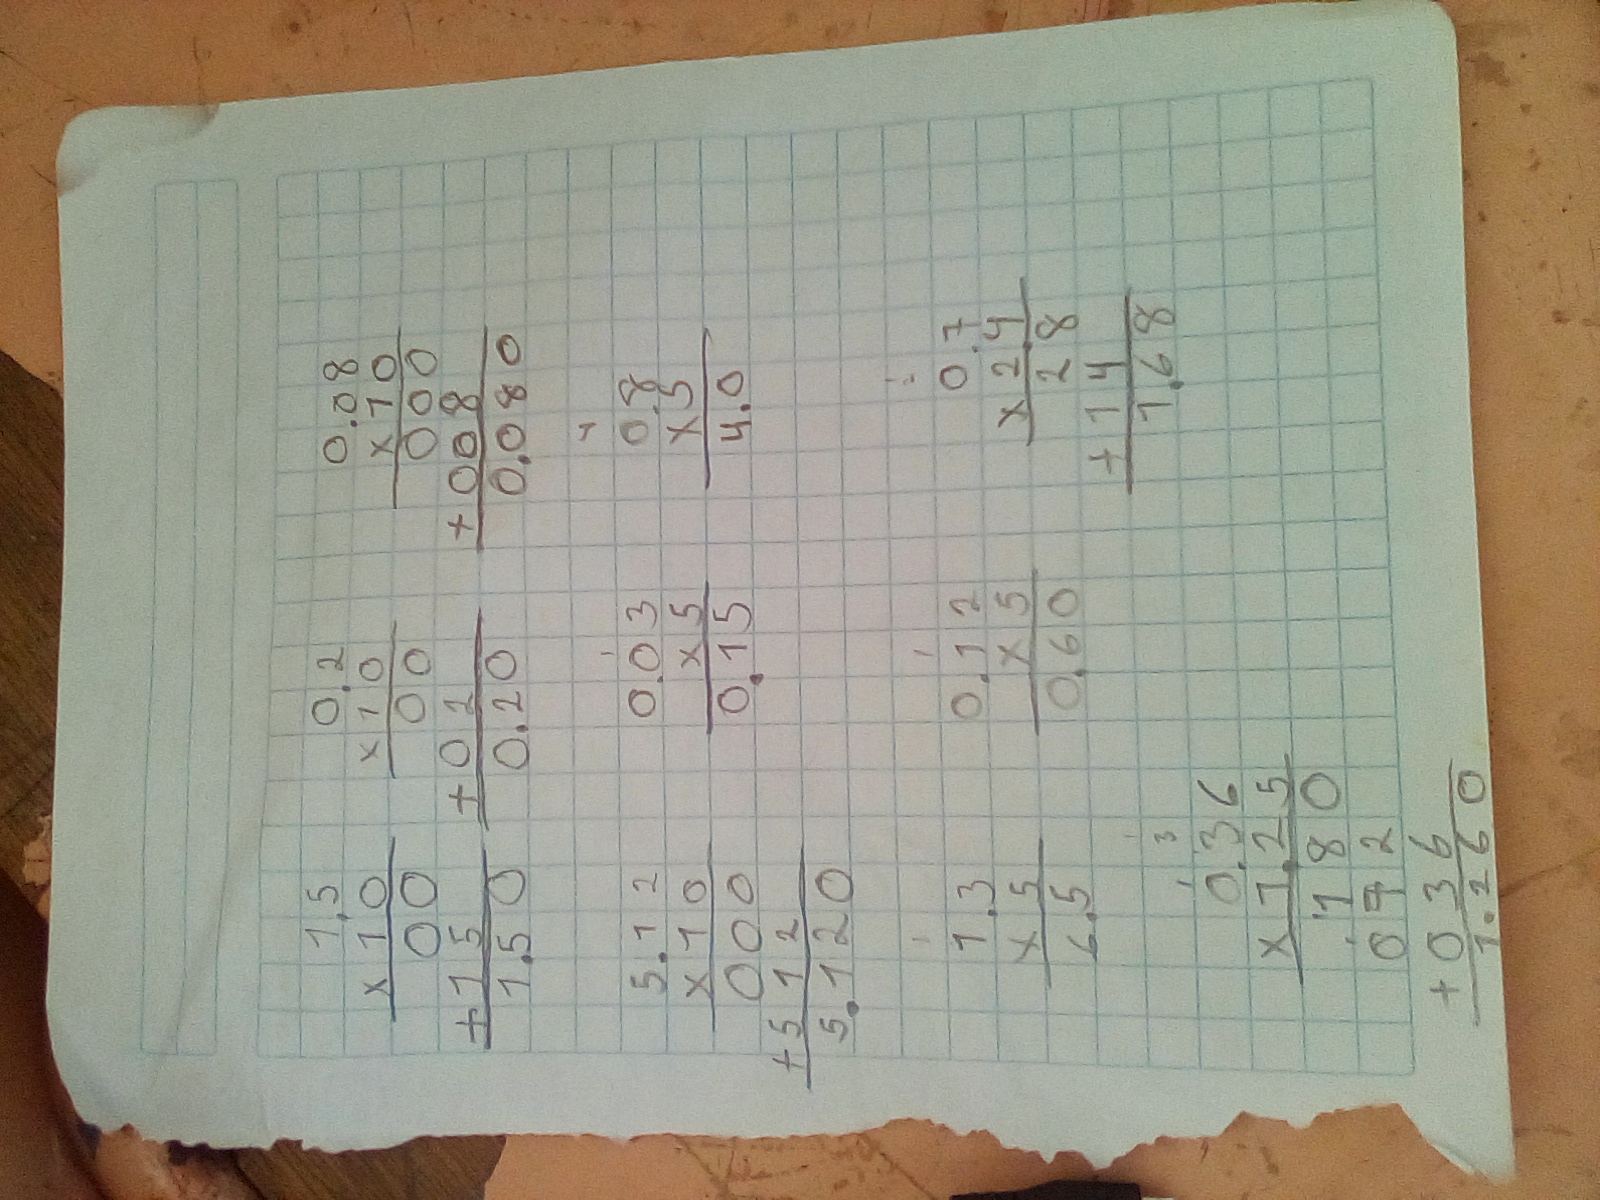 1.5
x10
00
+15
1.50
0.2
x10
00
+02
0.20
0.08
x10
000
+008
0.080
5.12
x10
000
+512
5.120
1
0.03
x5
0.15
4
0.8
x5
4.0
1
1.3
x5
6.5
1
0.12
x5
0.60
0.7
x2.4
28
+14
1.68
1 3
0.36
x1.25
180
072
+036
1.260